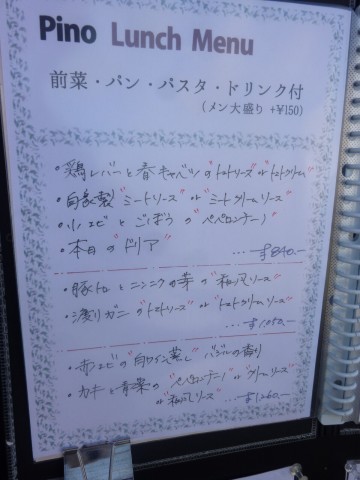 Pino Lunch Menu
前菜・パン・パスタ・ドリンク付
(メン大盛り +¥150)
・鶏レバーと春キャベツの"トマトソース"or"トマトクリーム"
・自家製"ミートソース"or"ミートクリームソース"
・小エビとごぼうの"ペペロンチーノ"
・本日の"ドリア" ...¥840.-
・豚トロとニンニクの芽の"和風ソース"
・渡りガニの"トマトソース"or"トマトクリームソース"
...¥1050.-
・赤エビの"白ワイン蒸し"バジルの香り
・カキと青菜の"ペペロンチーノ"or"クリームソース"
or"和風ソース" ...¥1260.-